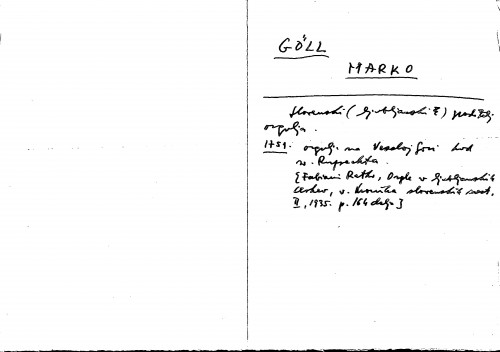 GÖLL
MARKO
Slovenski (ljubljanski?) graditelj
orgulja.
1759. orgulje na Veseloj Gori kod
sv. Ruprechta.
[Fabiani Ratko, Orgle v ljubljanskih
cerkev, v. Kronika slovenskih mest,
II, 1935. p. 164 dalje]